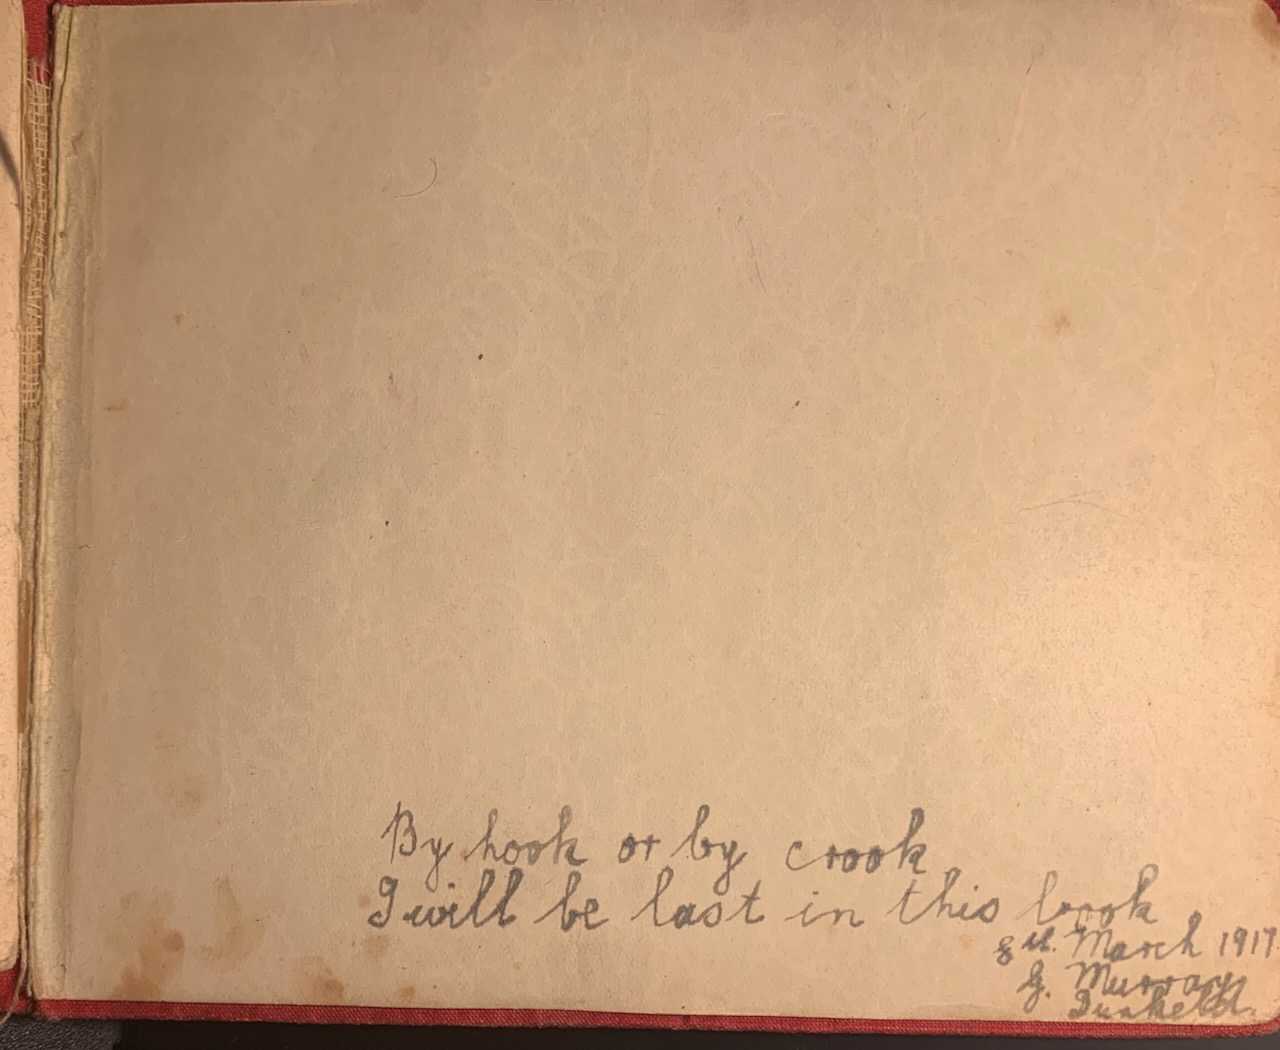 By hook or by crook
I will be last in this book
8th. March 1917
G. Murray
Dunkeld.